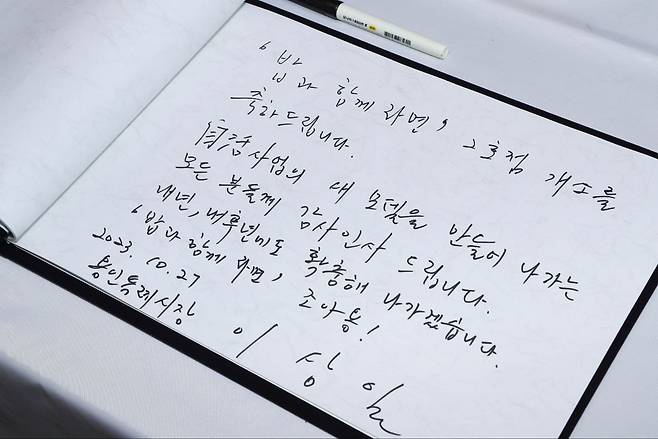 '밥과 함께 라면' 2호점 개소를
축하드립니다.
自活사업의 새 모델을 만들어 나가는
모든 분들께 감사인사 드립니다.
내년, 내후년에도 확충해 나가겠습니다.
'밥과 함께 라면' 조아용!
2023. 10. 27
용인특례시장 이상일